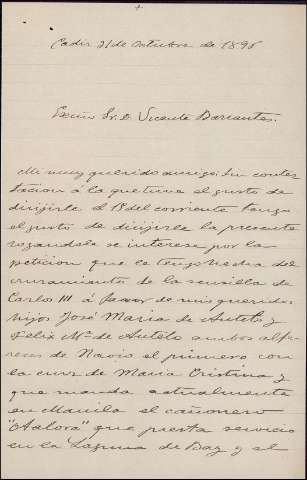 Cadiz 21 de Octubre de 1895
Excmo Sr. D. Vicente Barrantes.
Mi muy querido amigo: Sin contes
tacion á la que tuve el gusto de
dirijirle el 12 del corriente tengo
el gusto de dirijirle la presente
rogandole se interese por la
peticion que le tengo hecha del
cruzamiento de la sencilla de
Carlos III á favor de mis queridos
hijos José Maria de Antelo y
Felix Mª de Antelo ambos alfe
reces de Navio el primero con
la cruz de Maria Cristina y
que manda actualmente
en Manila el cañonero
que presta servicio
en la Laguna de Bay y el